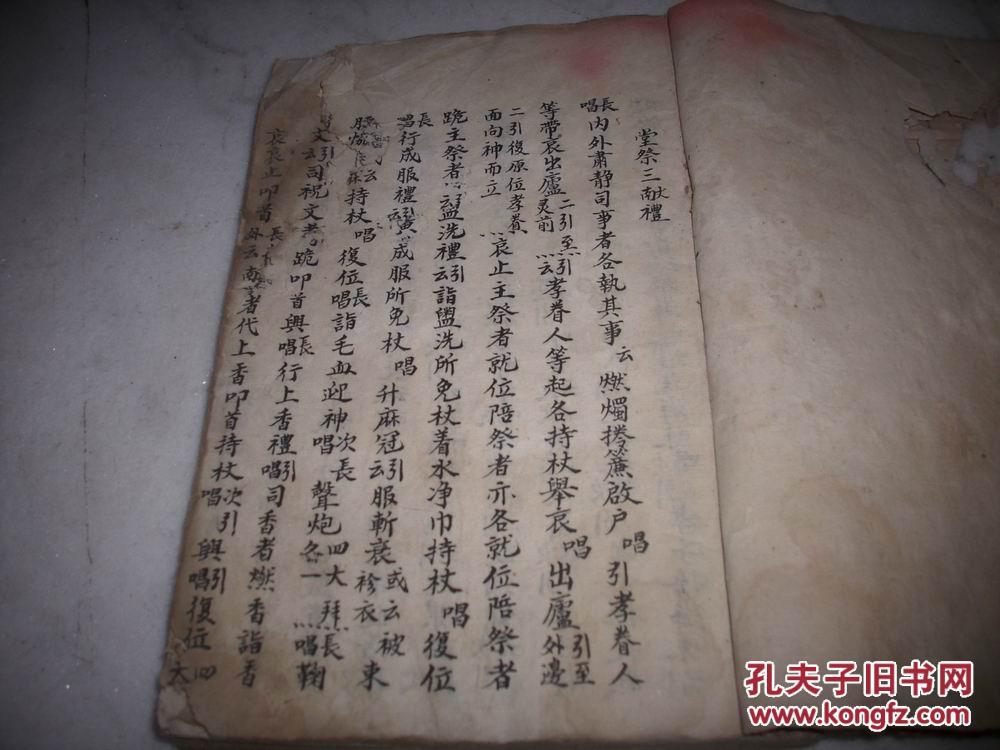 堂祭三献禮
長唱內外肅静司事者各執其事云燃燭捲簾啟户唱引孝眷人
等帶哀出廬二引至灵前云引孝眷人等起各持杖舉哀唱出廬引至外邊
二引後原位孝眷面向神而立哀止主祭者就位陪祭者亦各就位陪祭者
跪主祭者云盥洗禮云引詣盥洗所免杖着水净巾持杖唱復位
長唱行成服禮云引成服所免杖唱升麻冠云引服斬衰或云被衫衣束
持杖唱復位長唱詣毛血迎神唱次長聲炮四大拜長唱鞠
文云引司祝文者跪叩首興長唱行上香禮唱引司香者燃香詣香
哀哀止叩首長者代上香叩首持杖唱次引興唱引復位四大
孔夫子旧书网
www.kongfz.com